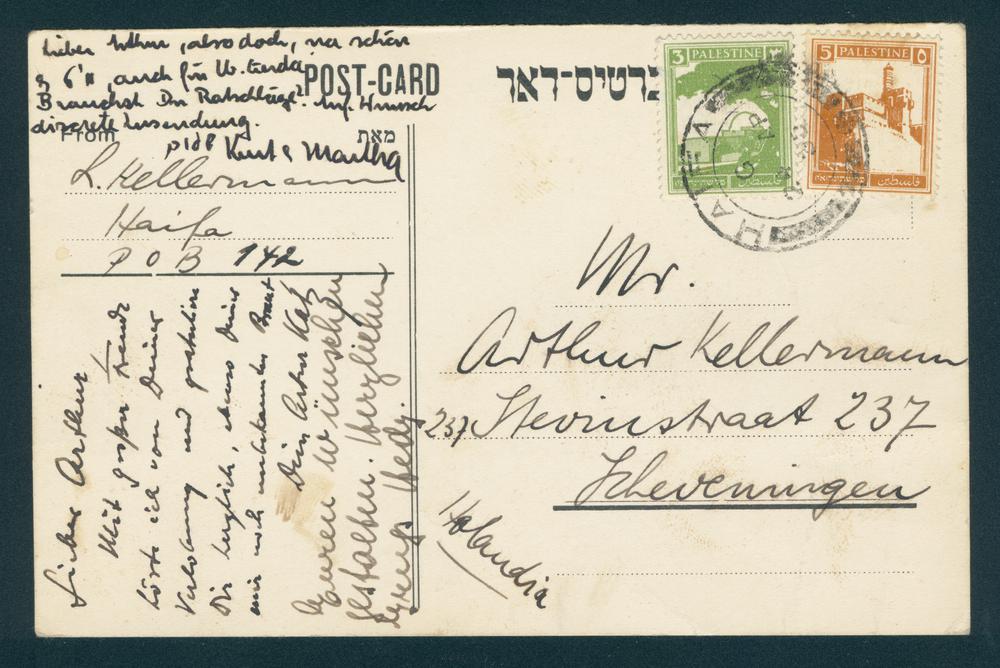 Lieber Arthur, also doch, na schön
auch für
Brauchst Du Ratschläge? Auf Wunsch
discrete Zusendung.
Kurt & Martha
POST-CARD
כרטיס-דאר
From
מאת
L. Kellermann
Haifa
P O B 142
3 PALESTINE ٣
5 PALESTINE ٥
فلسطين
فلسطين
HAIFA
Mr.
Arthur Kellermann
237 Stevinstraat 237
Scheveningen
Holandia
Lieber Arthur!
Mit großer Freude
hörte ich von Deiner
Verlobung und gratuliere
Dir herzlich, ebenso Deiner
mir noch unbekannten Braut
Dein Artur Kat
Euren Wünschen
gestalten. Herzlichen
Hedy.